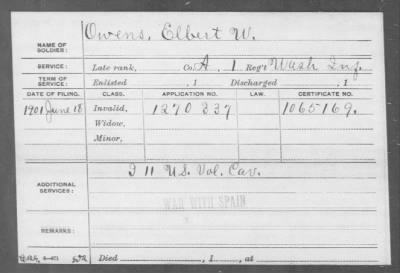 Owens, Elbert W.
NAME OF SOLDIER:
SERVICE: Late rank, Co. A, 1 Reg't Wash Inf.
TERM OF SERVICE: Enlisted , 1 Discharged , 1
DATE OF FILING. CLASS. APPLICATION NO. LAW. CERTIFICATE NO.
1901 June 18 Invalid, 1270337 1065169.
Widow,
Minor,
ADDITIONAL SERVICES: I 11 U.S. Vol. Cav.
WAR WITH SPAIN
REMARKS:
Died , 1 , at